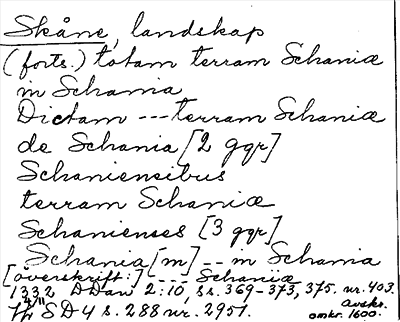 Skåne, landskap
(forts.) totam terram Schaniæ
in Schania
Dictam --- terram Schaniæ
de Schania [2 ggr]
Schaniensibus
terram Schaniæ
Schanienses [3 ggr]
Schania[m] -- in Schania
[överskrift:] ---- Schaniæ
1332 DDan 2:10, ss. 369-373, 375. nr. 403.
4/11 avskr.
SD 4 s. 288 nr. 2951. omkr. 1600.